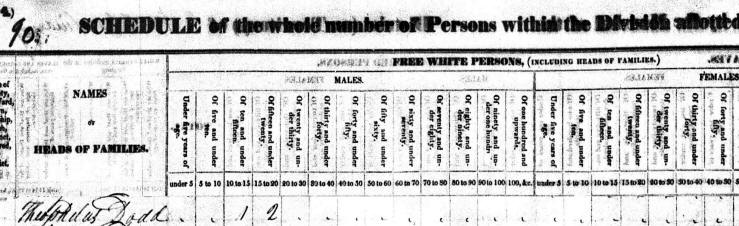 90.
SCHEDULE of the whole number of Persons within the Division allotted
FREE WHITE PERSONS, (INCLUDING HEADS OF FAMILIES.)
MALES. FEMALES
NAMES
OF
HEADS OF FAMILIES.
Under five years of age. Of five and under ten. Of ten and under fifteen. Of fifteen and under twenty. Of twenty and under thirty. Of thirty and under forty. Of forty and under fifty. Of fifty and under sixty. Of sixty and under seventy. Of seventy and under eighty. Of eighty and under ninety. Of ninety and under one hundr- Of one hundred and upwards. Under five years of age. Of five and under ten. Of ten and under fifteen. Of fifteen and under twenty. Of twenty and under thirty. Of thirty and under forty. Of forty and under fifty.
under 5 5 to 10 10 to 15 15 to 20 20 to 30 30 to 40 40 to 50 50 to 60 60 to 70 70 to 80 80 to 90 90 to 100 100, &c. under 5 5 to 10 10 to 15 15 to 20 20 to 30 30 to 40 40 to 50
Theophelus Dodd 1 2